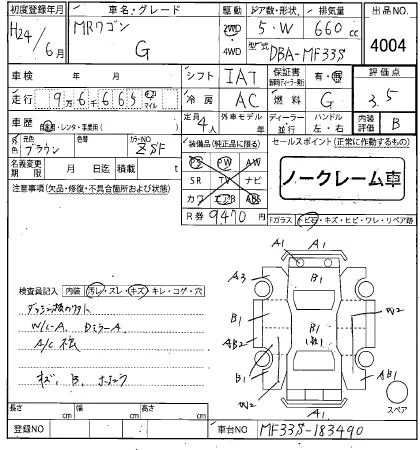 初度登録年月 車名・グレード 駆動 ドア数・形状 排気量 出品NO
H24/6月 MRワゴン G 2WD・4WD 5・W 660cc 4004
型式 DBA-MF33S
車検 年 月 シフト IAT 保証書 有・無 評価点
走行 9万6千665 km マイル 冷房 AC 燃料 G 3.5
車歴 自家用・レンタ・事業用( ) 定員 4人 外車モデル 年 ディーラー・並行 ハンドル 左・右 内装評価 B
外色 元色 ブラウン 色替 カラーNO ZSF 装備品(純正品に限る) セールスポイント(正常に作動するもの)
名義変更期限 月 日迄 積載 t PS PW AW
SR TV ナビ
カワ エアB ABS
ノークレーム車
注意事項(欠品・修復・不具合箇所および状態)
R券 9,470円
Fガラス トビ石・キズ・ヒビ・ワレ・リペア跡
検査員記入 内装 汚レ・スレ・キズ・キレ・コゲ・穴
W/C-A DミラーA
キズ、B、
A1 A1
A3 B1
B1 B1 W2
AB2
B1 AB1
W2
A1
スペア
長さ cm 幅 cm 高さ cm
登録NO 車台NO MF33S-183490